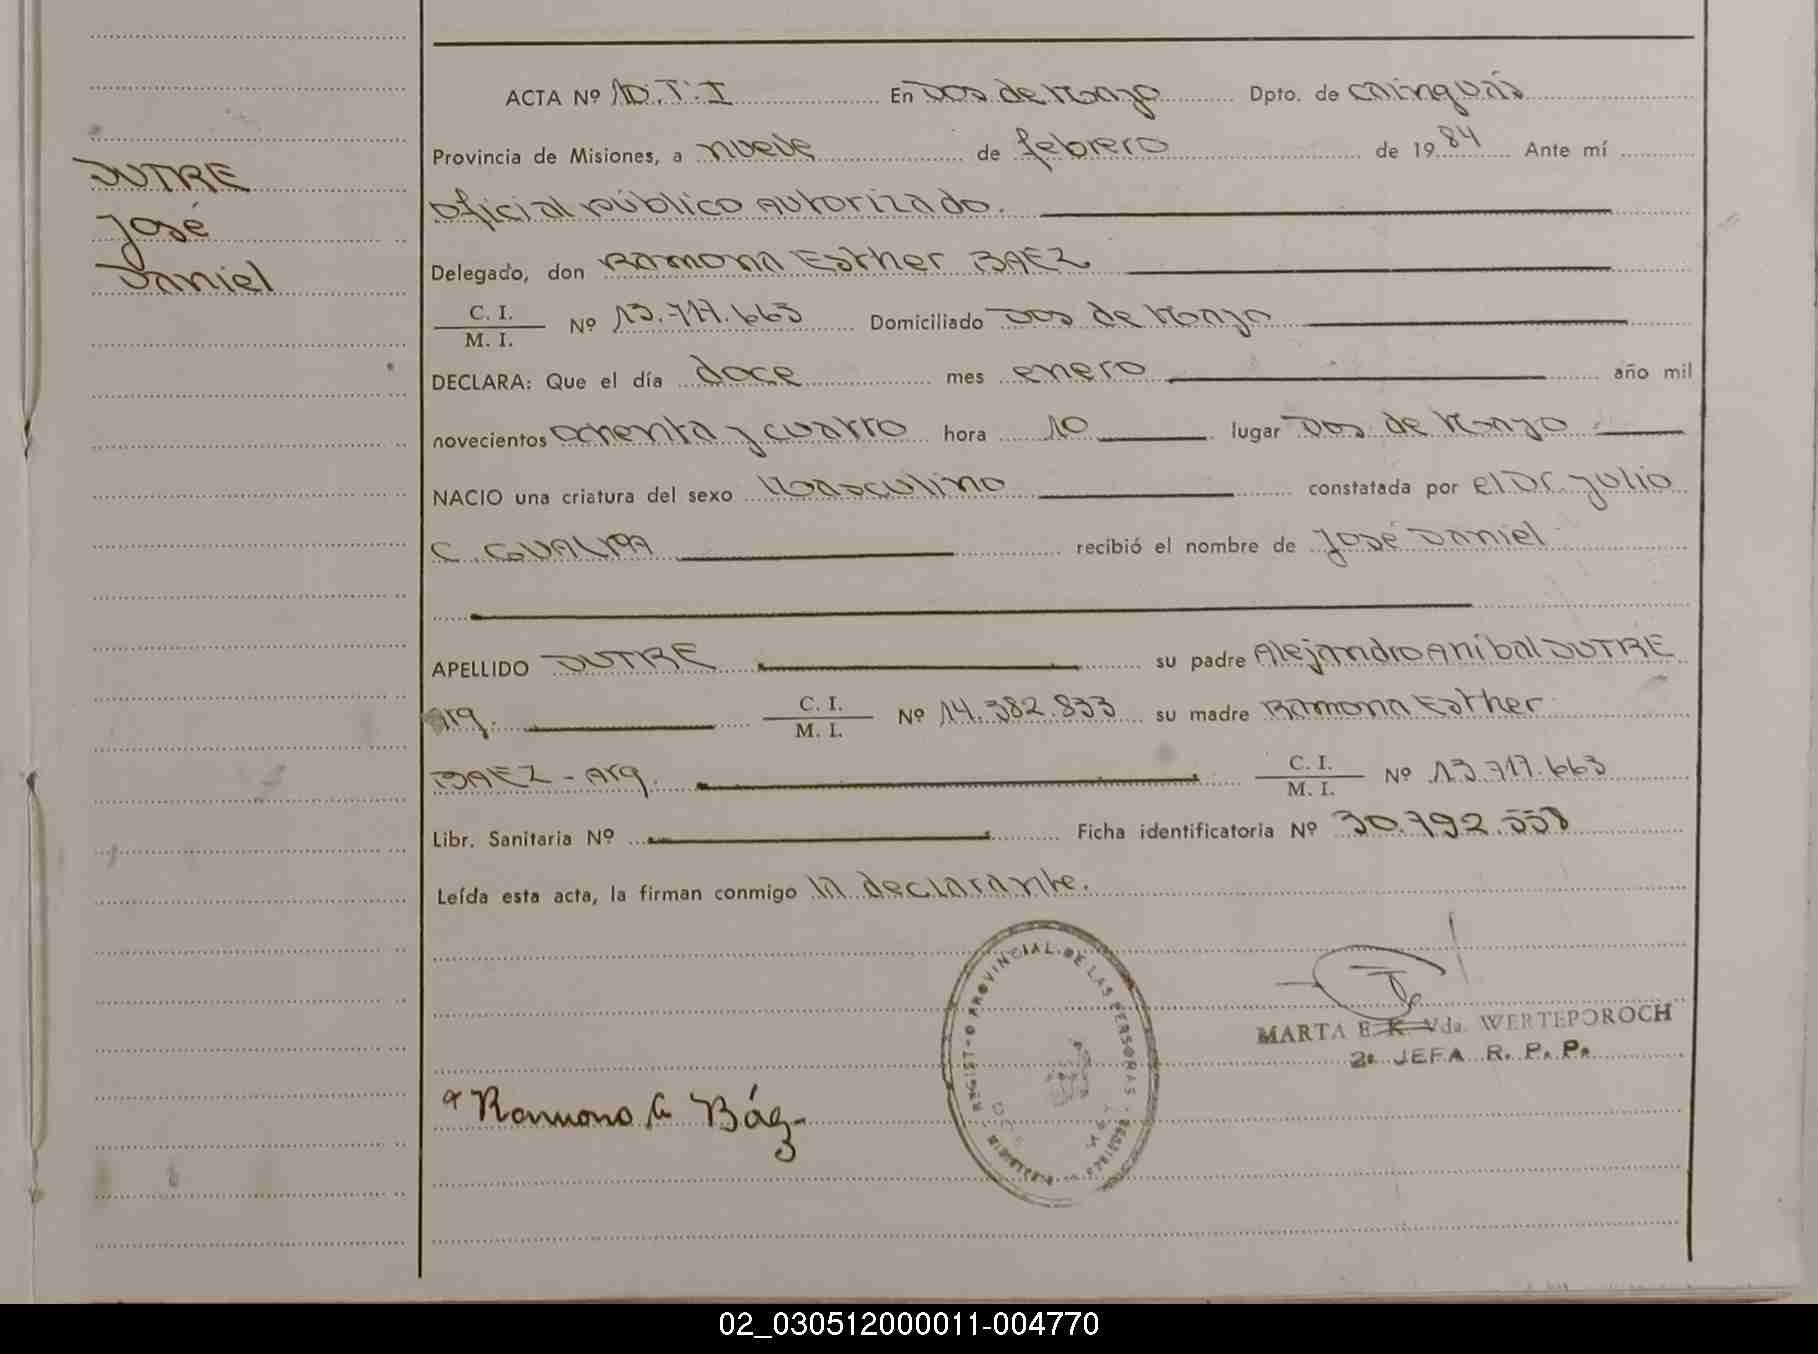 ACTA Nº 10.T:I En Dos de Mayo Dpto. de Cainguás
Provincia de Misiones, a nueve de febrero de 1984 Ante mí
DUTRE
oficial público autorizado.
José
Delegado, don Ramona Esther BAEZ
Daniel
C. I.
M. I. Nº 13.717.663 Domiciliado Dos de Mayo
DECLARA: Que el día doce mes enero año mil
novecientos ochenta y cuatro hora 10 lugar Dos de Mayo
NACIO una criatura del sexo Masculino constatada por el Dr. Julio
C. recibió el nombre de José Daniel
APELLIDO DUTRE su padre Alejandro Anibal DUTRE
Arg. C. I.
M. I. Nº 14.382.833 su madre Ramona Esther
BAEZ - Arg. C. I.
M. I. Nº 13.717.663
Libr. Sanitaria Nº Ficha identificatoria Nº 30.792.558
Leída esta acta, la firman conmigo la declarante.
REGISTRO PROVINCIAL DE LAS PERSONAS
MARTA E. K. Vda. WERTEPOROCH
2ª JEFA R. P. P.
Ramona E Báez
02_030512000011-004770